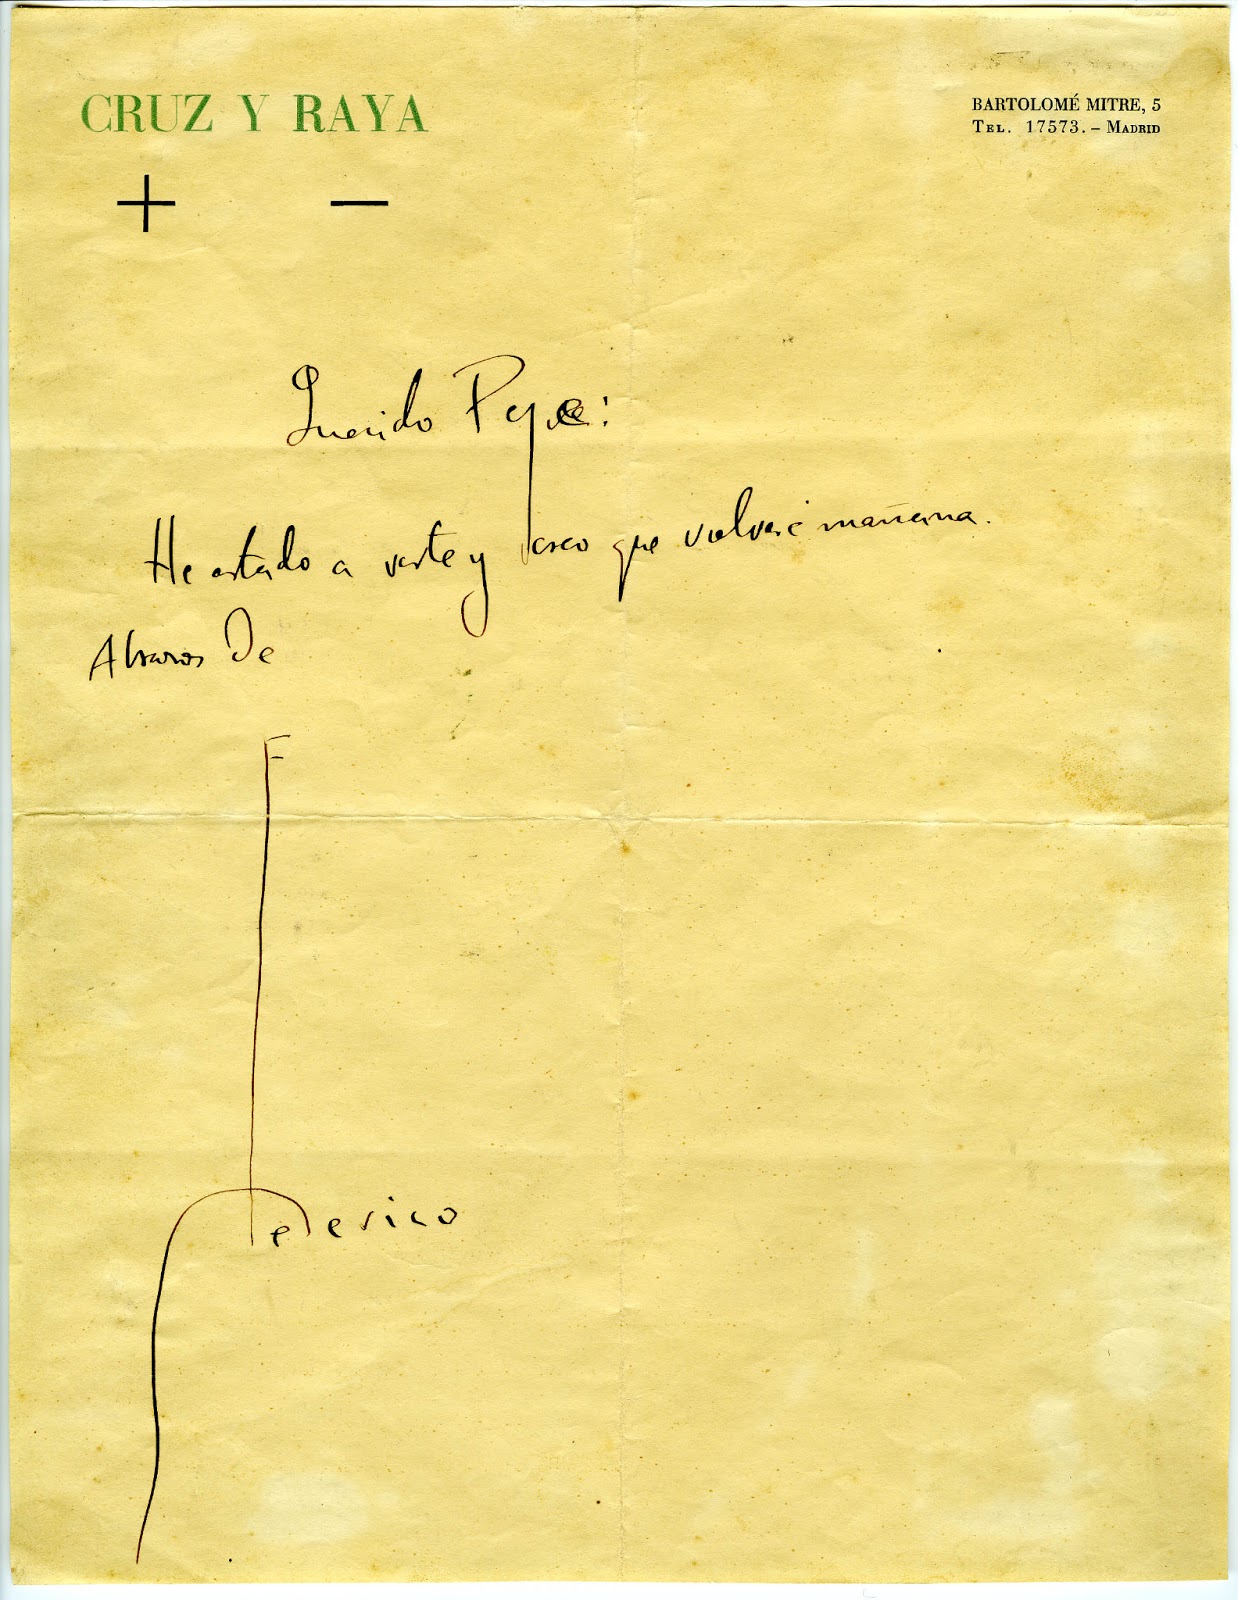 CRUZ Y RAYA
+ —
BARTOLOMÉ MITRE, 5
TEL. 17573. – MADRID
Querido Pepe:
He estado a verte y creo que volveré mañana.
Abrazos De
Federico